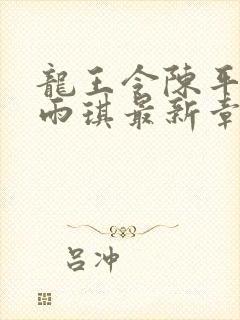 龍王令陳平
雨琪最新章
吕冲